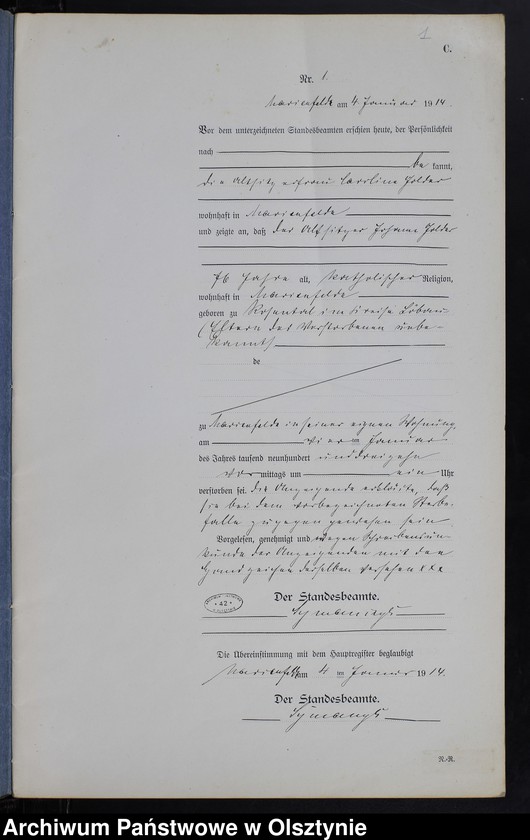 1
C.
Nr. 1.
Marienfelde am 4 Januar 1914.
Vor dem unterzeichneten Standesbeamten erschien heute, der Persönlichkeit
nach
be kannt,
die Altsitzerfrau Caroline
wohnhaft in Marienfelde
und zeigte an, daß der Altsitzer Johann
76 Jahre alt, katholischer Religion,
wohnhaft in Marienfelde
geboren zu Rosental im Kreise Löbau
(Eltern des Verstorbenen unbe-
kannt)
de
zu Marienfelde in seiner eignen Wohnung,
am vier ten Januar
des Jahres tausend neunhundert
vor mittags um ein Uhr
verstorben sei. Die Anzeigende erklärte, daß
sie bei dem vorbezeichneten Sterbe-
falle zugegen gewesen sein
Vorgelesen, genehmigt und wegen Schreibensun-
kunde der Anzeigenden mit den
Handzeichen derselben versehen xxx
Der Standesbeamte.
42
Die Übereinstimmung mit dem Hauptregister beglaubigt
Marienfelde am 4 ten Januar 1914.
Der Standesbeamte.
N.-R.
Archiwum Państwowe w Olsztynie